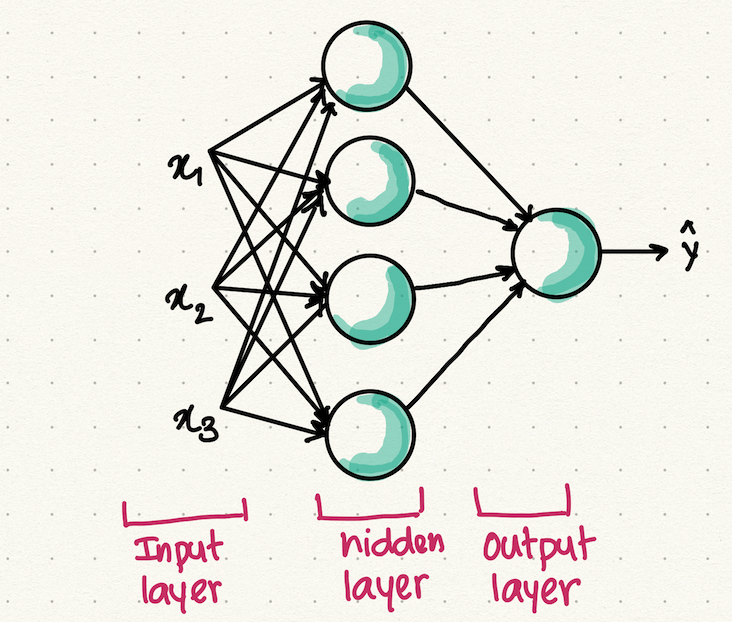 x₁
x₂
x₃
ŷ
Input
layer
hidden
layer
Output
layer